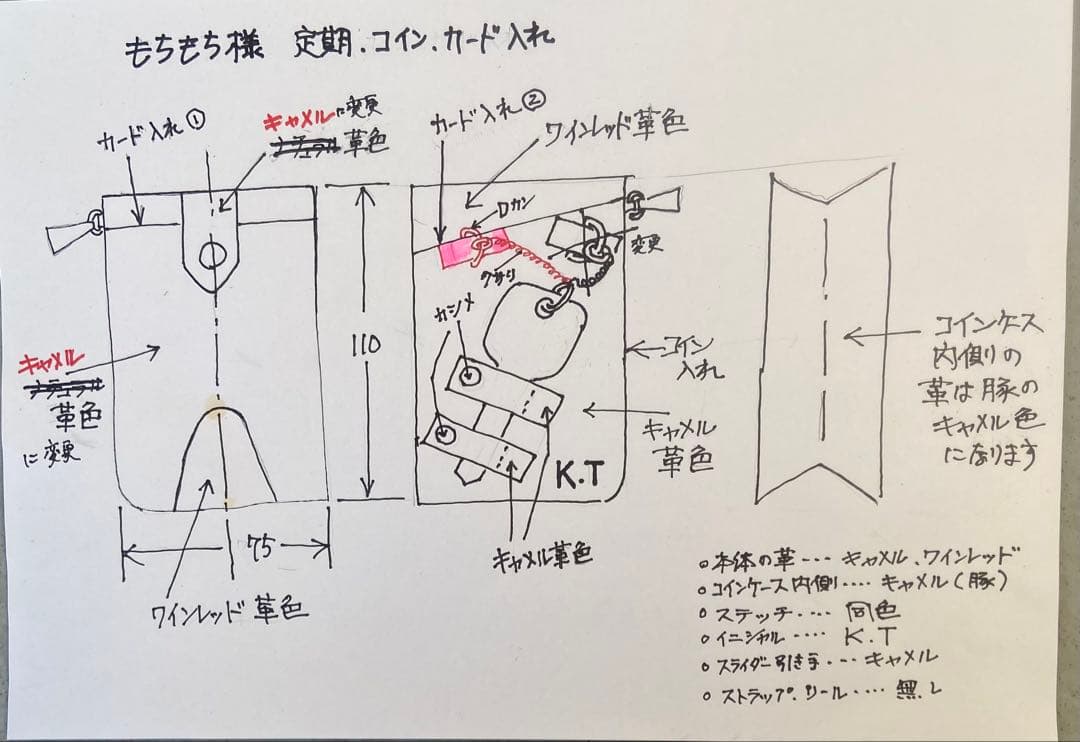 もちもち様 定期.コイン.カード入れ
カード入れ①
キャメルに変更
ナチュラル革色
カード入れ②
ワインレッド革色
Dカン
変更
クサリ
カシメ
110
コイン
入れ
キャメル
ナチュラル
革色
に変更
キャメル
革色
K.T
コインケース
内側の
革は豚の
キャメル色
になります
75
キャメル革色
ワインレッド革色
○本体の革・・・キャメル、ワインレッド
○コインケース内側・・・・キャメル(豚)
○ステッチ・・・・同色
○イニシャル・・・・K.T
○スライダー引き手・・・キャメル
○ストラップ.リール・・・・無し